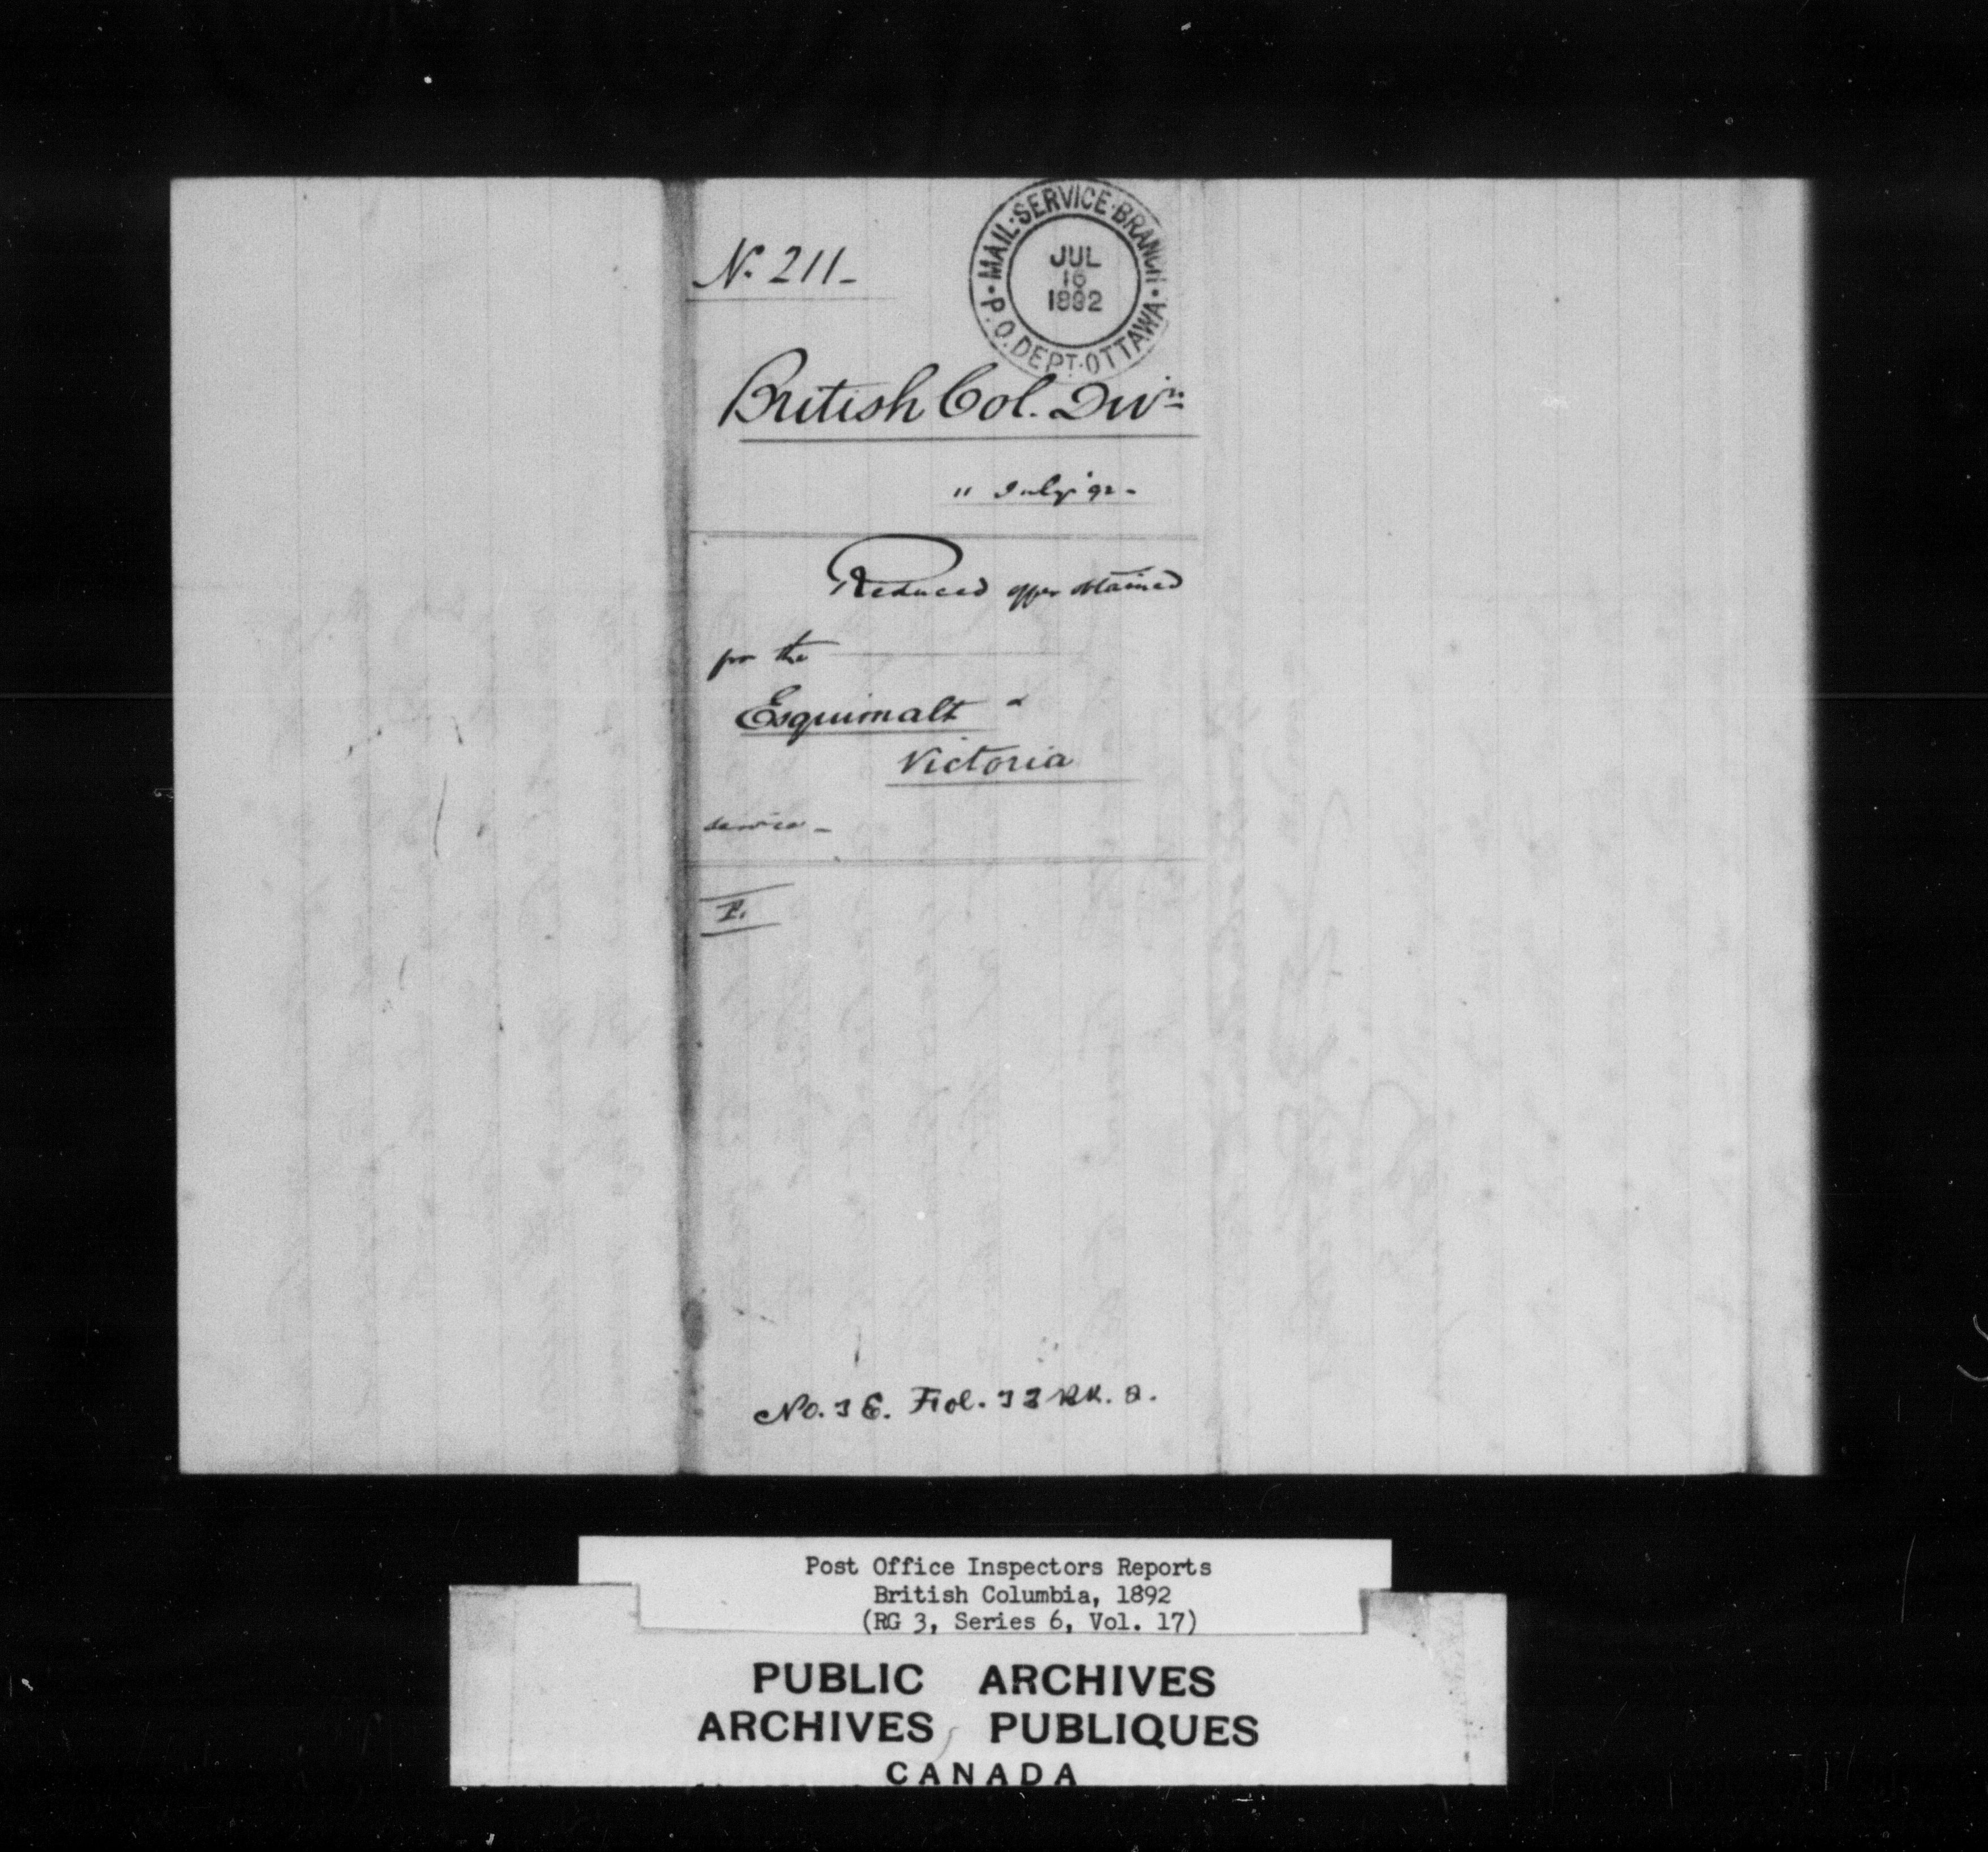 N. 211-
MAIL·SERVICE·BRANCH·
P.O. DEPT·OTTAWA·
JUL
16
1892
British Col. Divn
11 July 92-
Reduced offer obtained
for the
Esquimalt -
Victoria
service-
P.
No. 3 E. Fol.
Post Office Inspectors Reports
British Columbia, 1892
(RG 3, Series 6, Vol. 17)
PUBLIC ARCHIVES
ARCHIVES PUBLIQUES
CANADA